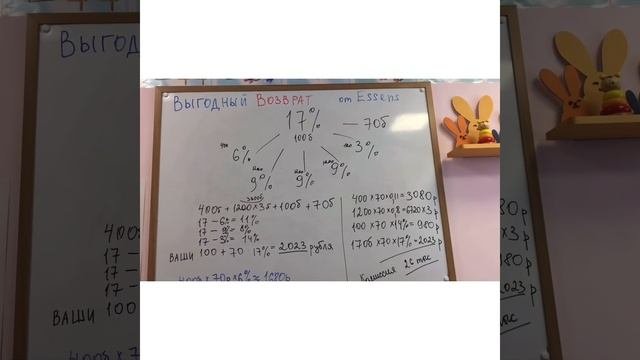 Выгодный Возврат от Essens
17%
100б
— 70б
6%
9%
9%
9%
3%
3600б
400б + (1200×3)б + 100б + 70б
17 – 6% = 11%
17 – 9% = 8%
17 – 3% = 14%
ВАШИ 100 + 70 17% = 2023 рубля
400×70×0,11 = 3080 р
1200×70×0,8 = 6720×3 р
100×70×14% = 980 р
170б×70×17% = 2023 р
Комиссия